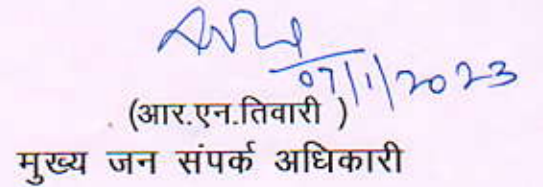 07/1/2023
(आर.एन.तिवारी )
मुख्य जन संपर्क अधिकारी